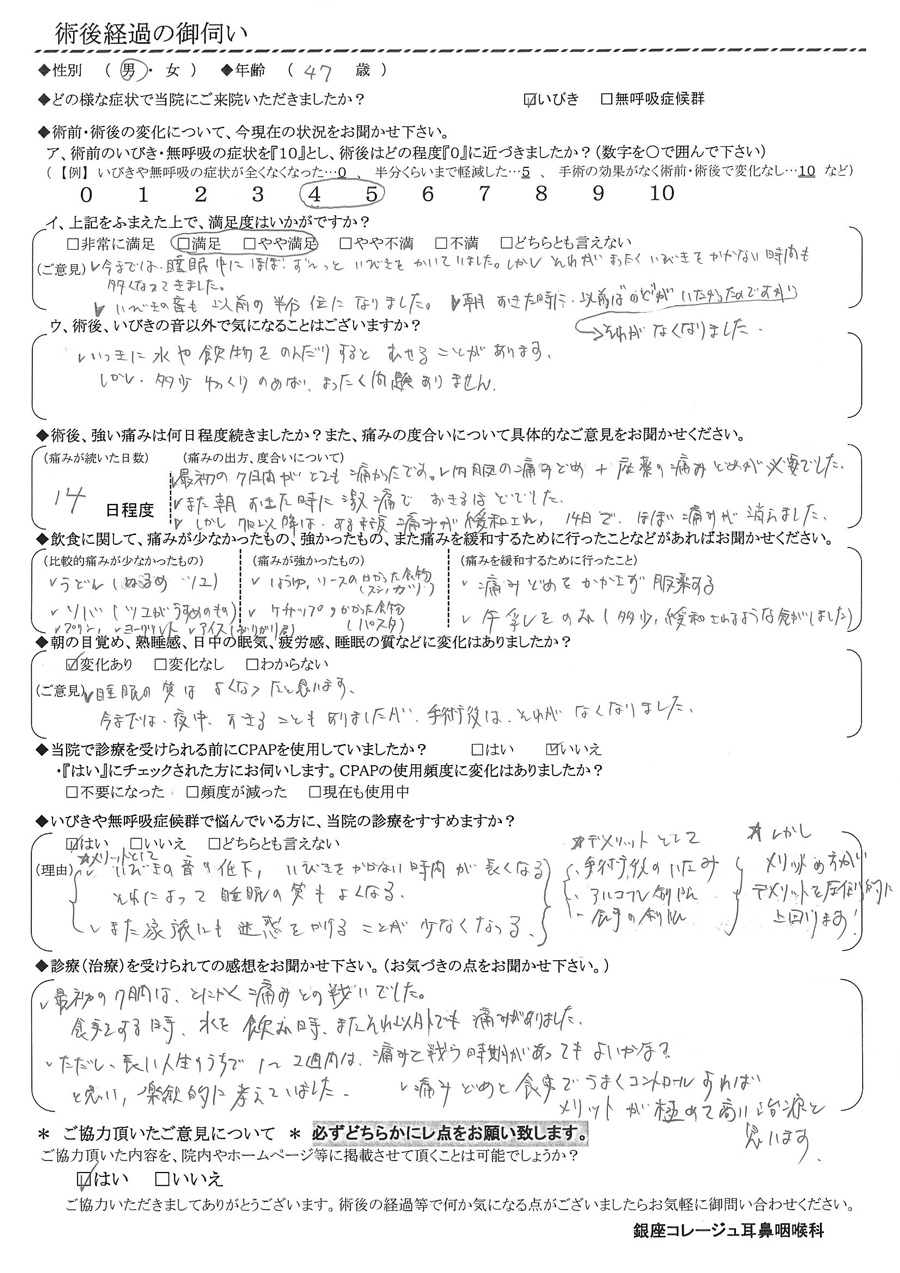 術後経過の御伺い
◆性別 （ 男 ・ 女 ） ◆年齢 （ 47 歳 ）
◆どの様な症状で当院にご来院いただきましたか？ ☑いびき □無呼吸症候群
◆術前・術後の変化について、今現在の状況をお聞かせ下さい。
ア、術前のいびき・無呼吸の症状を『10』とし、術後はどの程度『0』に近づきましたか？（数字を○で囲んで下さい）
（【例】 いびきや無呼吸の症状が全くなくなった…0 、 半分くらいまで軽減した…5 、 手術の効果がなく術前・術後で変化なし…10 など）
0 1 2 3 4 5 6 7 8 9 10
イ、上記をふまえた上で、満足度はいかがですか？
□非常に満足 □満足 □やや満足 □やや不満 □不満 □どちらとも言えない
（ご意見） ✓今までは、睡眠中にほぼ、ずーっと いびきをかいていました。しかし それがまったく いびきをかかない時間も
多くなってきました。
✓いびきの音も 以前の半分位になりました。 ✓朝 おきた時に、以前はのどが いたかったのですが
→それが なくなりました。
ウ、術後、いびきの音以外で気になることはございますか？
・いっきに 水や飲物を のんだりすると むせることがあります。
しかし、多少 ゆっくり のめば、まったく問題ありません。
◆術後、強い痛みは何日程度続きましたか？また、痛みの度合いについて具体的なご意見をお聞かせください。
（痛みが続いた日数） （痛みの出方、度合いについて）
14 日程度
✓最初の7日間が とても痛かったです。✓内服の痛みどめ ＋ 座薬の痛みどめが 必要でした。
✓また朝 おきた時に 激痛で おきるほどでした。
✓しかし 7日以降は、痛みが緩和され、14日で、ほぼ 痛みが 消えました。
◆飲食に関して、痛みが少なかったもの、強かったもの、また痛みを緩和するために行ったことなどがあればお聞かせください。
（比較的痛みが少なかったもの） （痛みが強かったもの） （痛みを緩和するために行ったこと）
✓うどん（ぬるめ ツユ）
✓ソバ（ツユがうすめのもの）
✓プリン、✓ヨーグルト ✓アイス
✓しょうゆ、ソースの かかった食物
✓ケチャップのかかった食物
（パスタ）
✓痛みどめをかかさず 服薬する
✓牛乳をのむ（多少、緩和されるような気がしました）
◆朝の目覚め、熟睡感、日中の眠気、疲労感、睡眠の質などに変化はありましたか？
☑変化あり □変化なし □わからない
（ご意見） ✓睡眠の質は よくなったと思います。
今までは、夜中、おきることもありましたが、手術後は、それが なくなりました。
◆当院で診療を受けられる前にCPAPを使用していましたか？ □はい ☑いいえ
・『はい』にチェックされた方にお伺いします。CPAPの使用頻度に変化はありましたか？
□不要になった □頻度が減った □現在も使用中
◆いびきや無呼吸症候群で悩んでいる方に、当院の診療をすすめますか？
☑はい □いいえ □どちらとも言えない
（理由）
＊メリットとして
・いびきの音の低下、いびきをかかない時間が長くなる
それによって 睡眠の質もよくなる。
・また家族にも 迷惑をかけることが 少なくなる。
＊デメリットとして
・手術後のいたみ
・アルコール制限
・食事の制限
＊しかし
メリットの方が
デメリットを圧倒的に
上回ります！
◆診療（治療）を受けられての感想をお聞かせ下さい。（お気づきの点をお聞かせ下さい。）
✓最初の7日間は、とにかく 痛みとの戦いでした。
食事をする時、水を 飲む時、またそれ以外でも 痛みがありました。
・ただし、長い人生のうちで 1〜2週間は、痛みと戦う時期があってもよいかな？
と思い、楽観的に 考えていました。 ✓痛みどめと食事で うまくコントロールすれば
メリットが極めて高い治療と
思います。
＊ ご協力頂いたご意見について ＊ 必ずどちらかにレ点をお願い致します。
ご協力頂いた内容を、院内やホームページ等に掲載させて頂くことは可能でしょうか？
☑はい □いいえ
ご協力いただきましてありがとうございます。術後の経過等で何か気になる点がございましたらお気軽に御問い合わせください。
銀座コレージュ耳鼻咽喉科